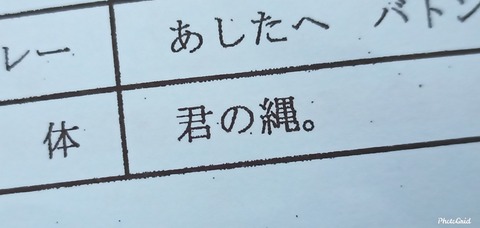 レー あしたへ バトン
体 君の縄。
PhotoGrid